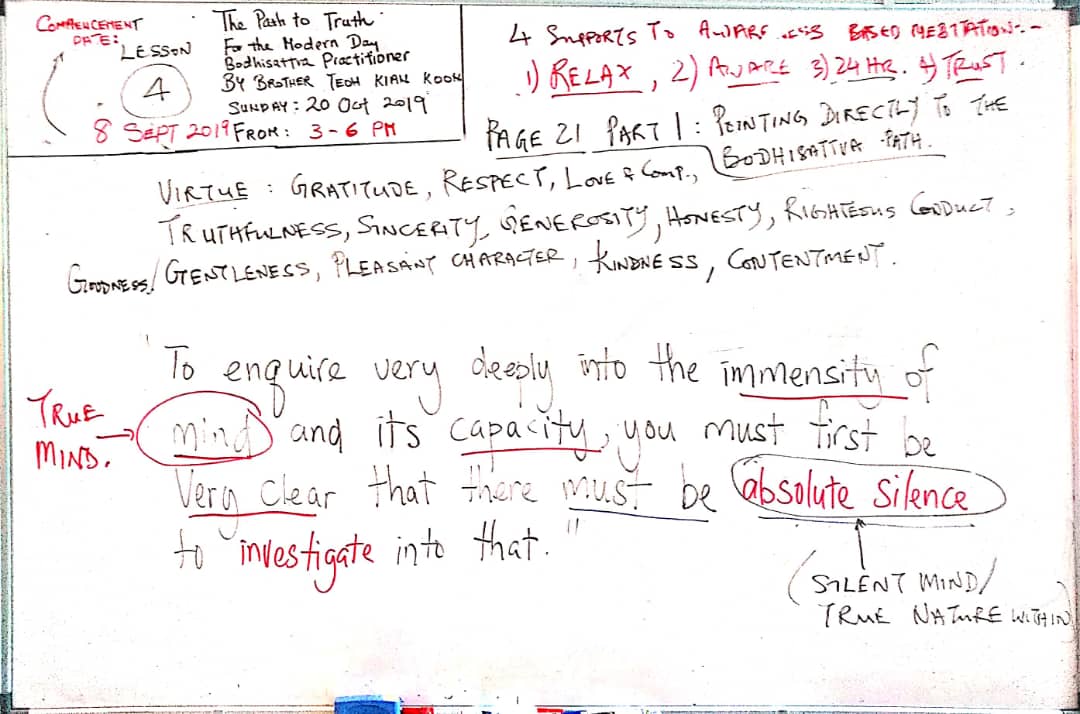 COMMENCEMENT
DATE:
LESSON
4
8 SEPT 2019
The Path to Truth
For the Modern Day
Bodhisattva Practitioner
BY BROTHER TEOH KIAN KOON
SUNDAY: 20 Oct 2019
FROM: 3-6 PM
4 SUPPORTS TO AWARENESS BASED MEDITATION:-
1) RELAX, 2) AWARE 3) 24 HR. 4) TRUST.
PAGE 21 PART 1: POINTING DIRECTLY TO THE
BODHISATTVA PATH.
VIRTUE : GRATITUDE, RESPECT, LOVE & COMP.,
TRUTHFULNESS, SINCERITY, GENEROSITY, HONESTY, RIGHTEOUS CONDUCT,
GOODNESS/GENTLENESS, PLEASANT CHARACTER, KINDNESS, CONTENTMENT.
"To enquire very deeply into the immensity of
mind and its capacity, you must first be
Very Clear that there must be absolute Silence
to investigate into that."
TRUE
MIND.
(SILENT MIND/
TRUE NATURE WITHIN